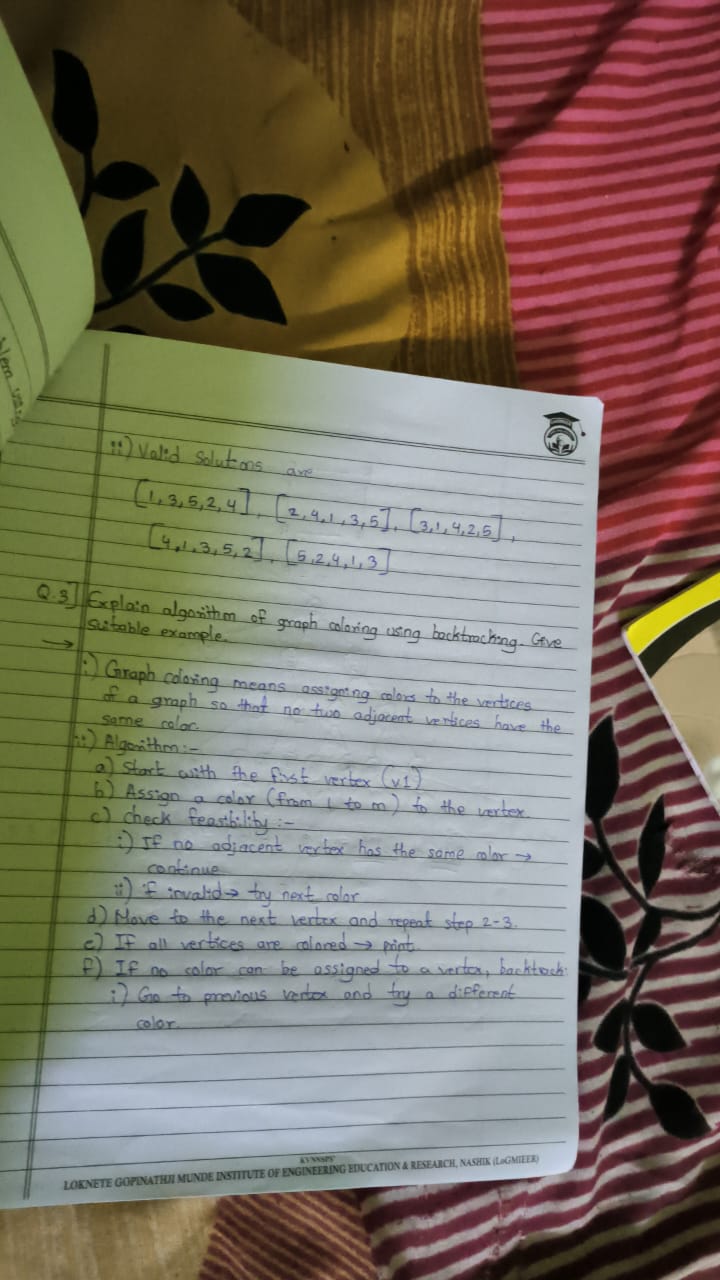 ii) Valid Solutions are
[1,3,5,2,4], [2,4,1,3,5], [3,1,4,2,5],
[4,1,3,5,2], [5,2,4,1,3]
Q.3] Explain algorithm of graph coloring using backtracking. Give
suitable example.
→
i) Graph coloring means assigning colors to the vertices
of a graph so that no two adjacent vertices have the
same color.
ii) Algorithm:-
a) Start with the first vertex (v1)
b) Assign a color (from 1 to m) to the vertex.
c) check feasibility :-
i) If no adjacent vertex has the same color →
continue
ii) if invalid → try next color
d) Move to the next vertex and repeat step 2-3.
e) If all vertices are colored → print.
f) If no color can be assigned to a vertex, backtrack:
i) Go to previous vertex and try a different
color.
KVNNSPS'
LOKNETE GOPINATHJI MUNDE INSTITUTE OF ENGINEERING EDUCATION & RESEARCH, NASHIK (LoGMIEER)